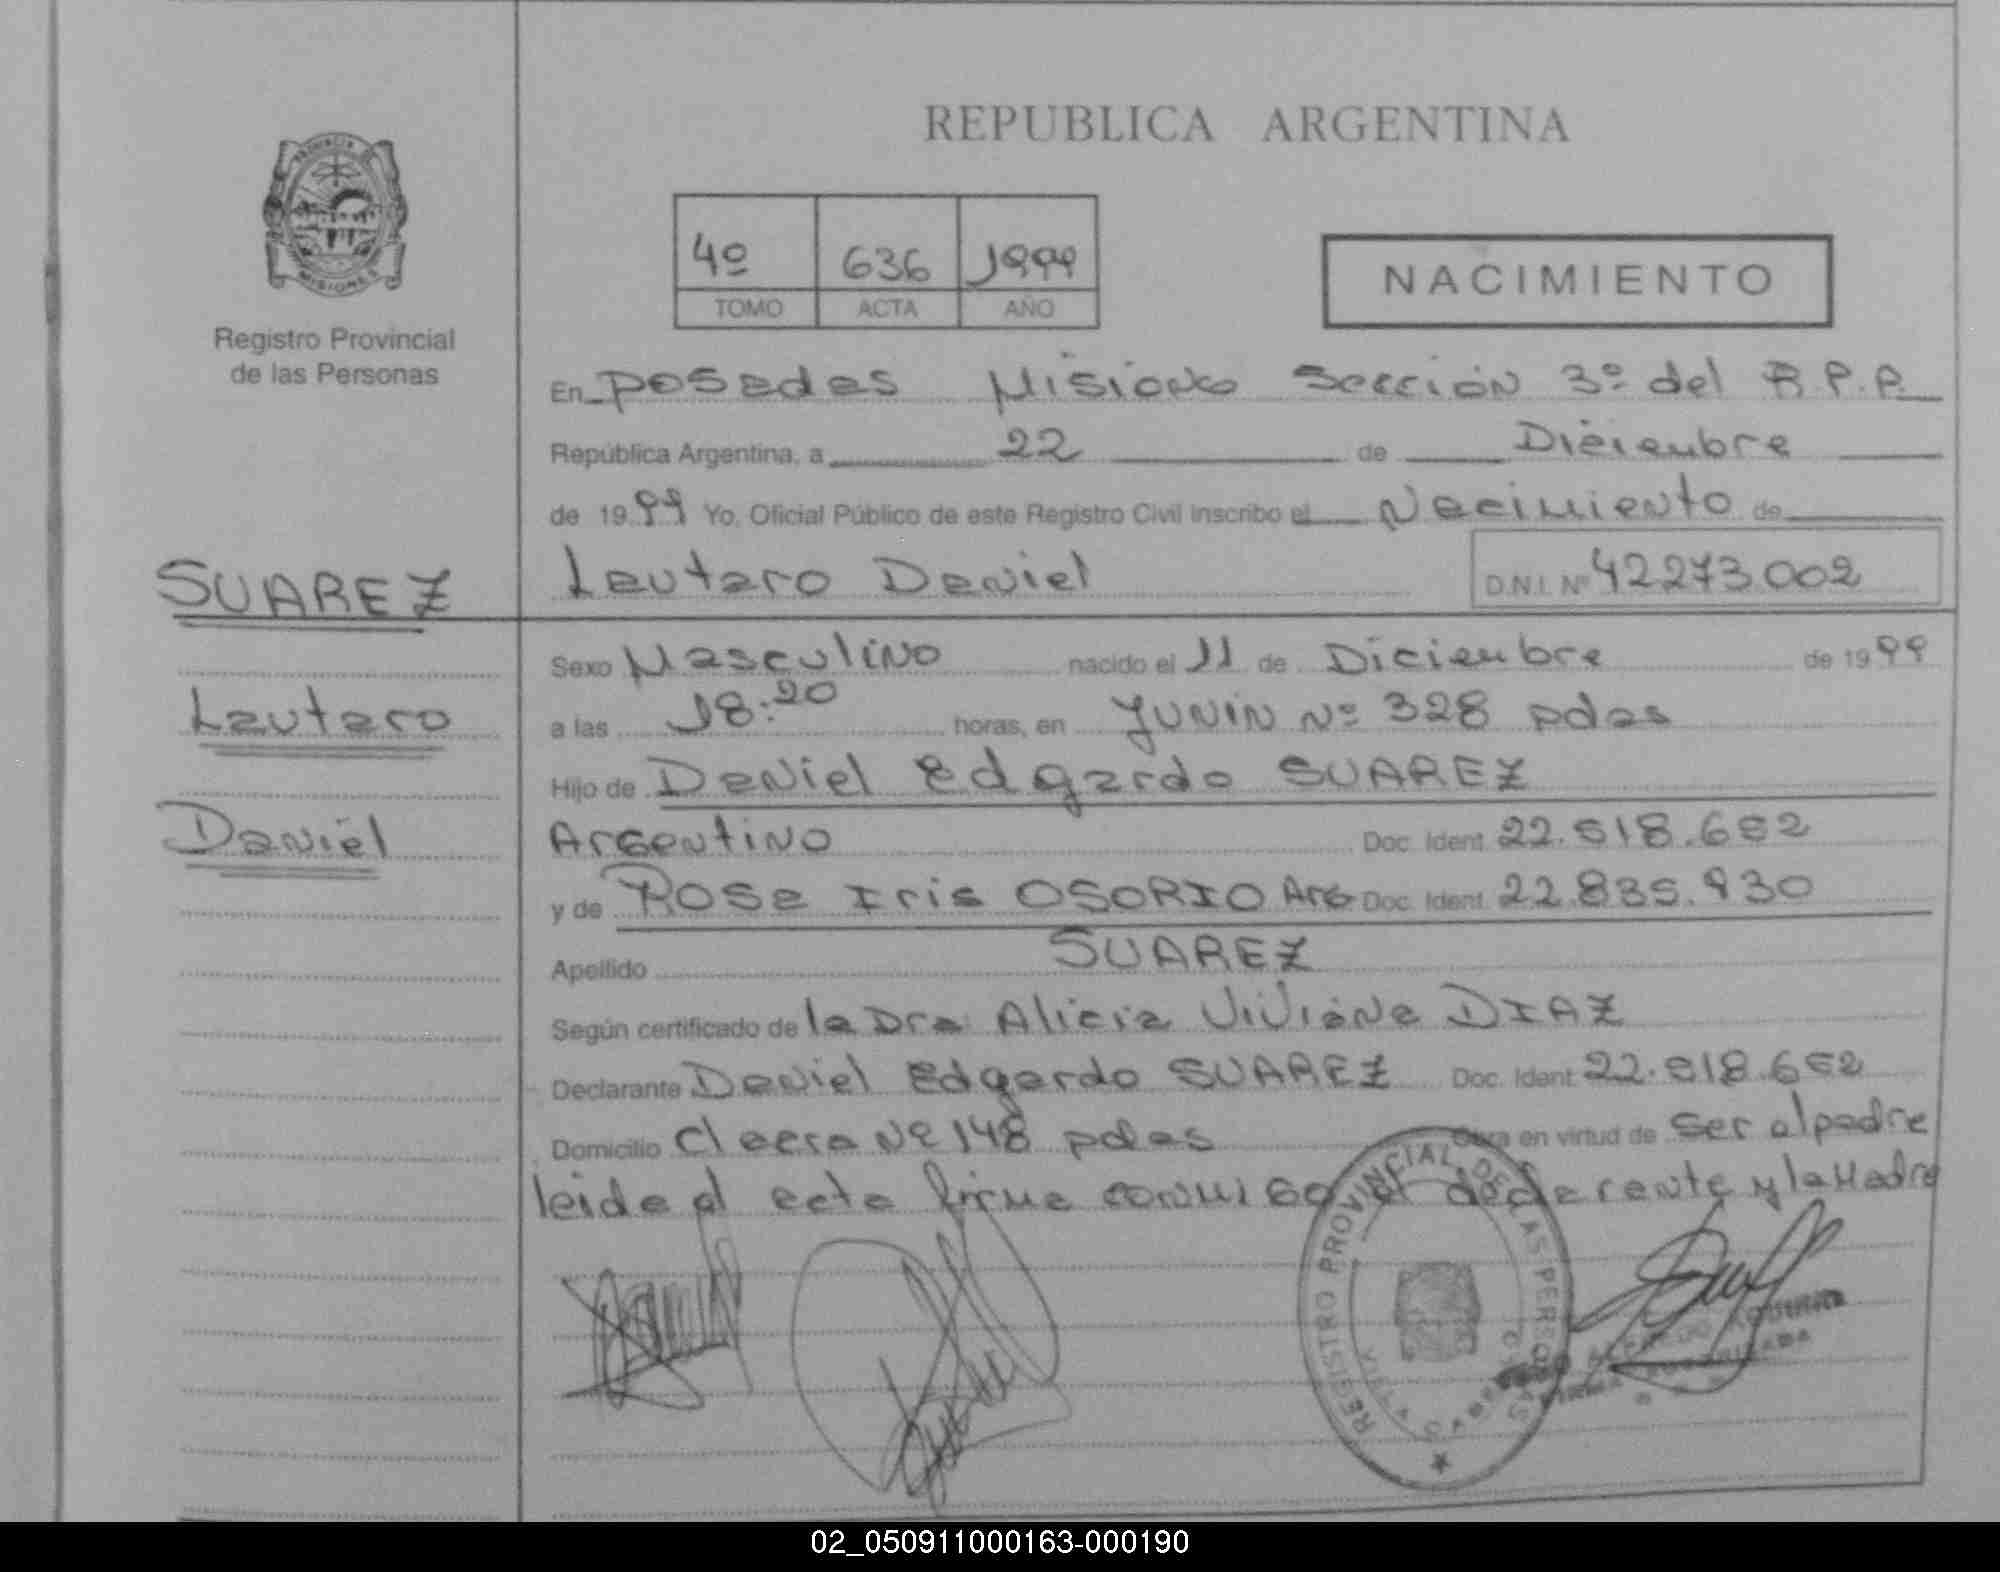 REPUBLICA ARGENTINA
PROVINCIA DE
MISIONES
Registro Provincial
de las Personas
4º 636 1999
TOMO ACTA AÑO
NACIMIENTO
En Posadas Misiones Sección 3º del R.P.P.
República Argentina, a 22 de Diciembre
de 1999 Yo, Oficial Público de este Registro Civil inscribo el Nacimiento de
SUAREZ
Lautaro Daniel D.N.I. Nº 42273.002
Sexo Masculino nacido el 11 de Diciembre de 1999
Lautaro
a las 18:20 horas, en Junin Nº 328 pdas
Hijo de Daniel Edgardo SUAREZ
Daniel
Argentino Doc. Ident. 22.818.652
y de Rosa Iris OSORIO Arg. Doc. Ident. 22.835.930
Apellido SUAREZ
Según certificado de la Dra Alicia Viviana DIAZ
Declarante Daniel Edgardo SUAREZ Doc. Ident. 22.818.652
Domicilio pdas Obra en virtud de ser el padre
leida el acta firma conmigo el declarante y la Madre
REGISTRO PROVINCIAL DE LAS PERSONAS
02_050911000163-000190